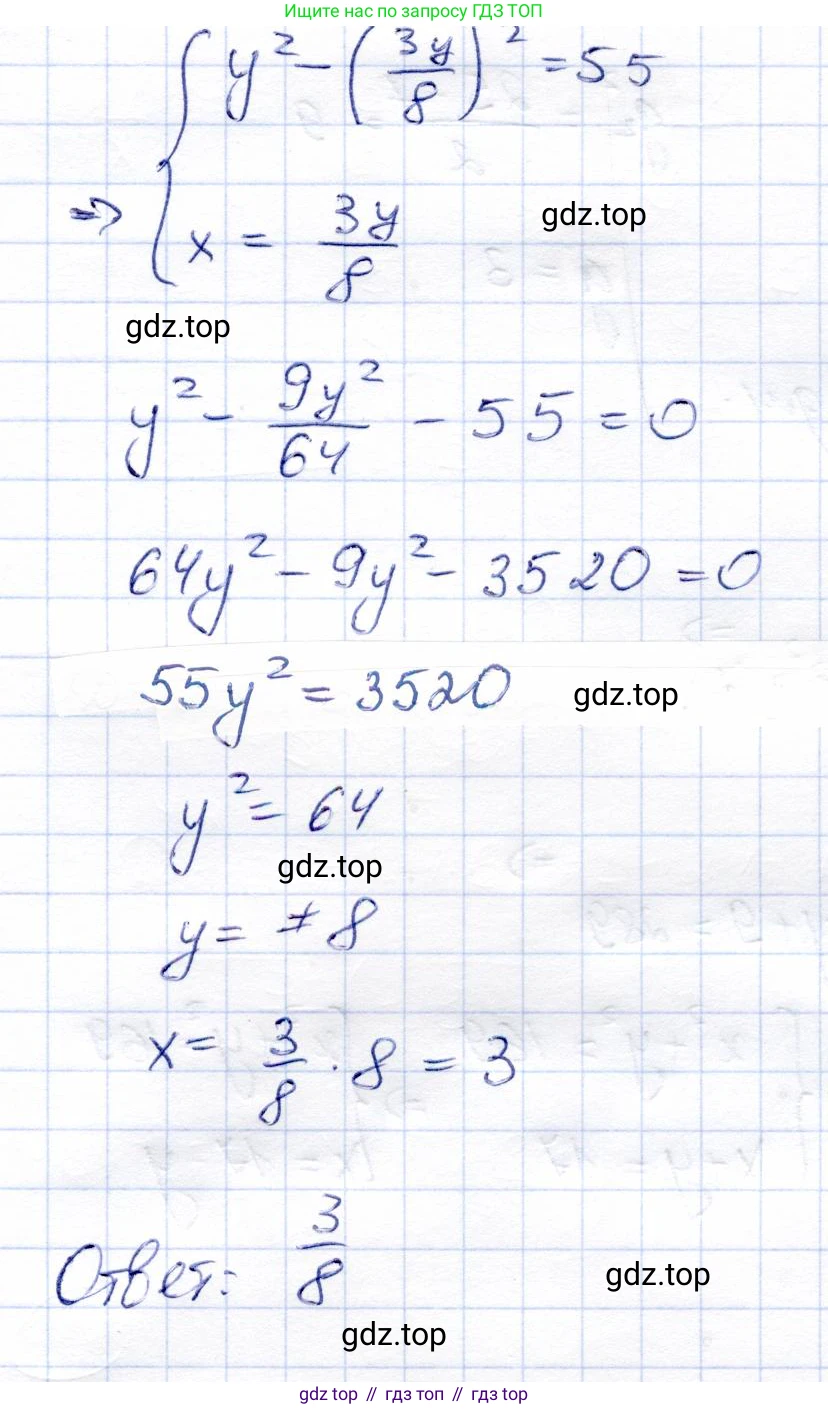 Ищите нас по запросу ГДЗ ТОП
y² - (3y/8)² = 55
=> x = 3y/8
gdz.top
gdz.top
y² - 9y²/64 - 55 = 0
64y² - 9y² - 3520 = 0
55y² = 3520
gdz.top
y² = 64
gdz.top
y = ±8
x = 3/8 · 8 = 3
Ответ: 3/8
gdz.top
gdz.top
gdz top // гдз топ // гдз top